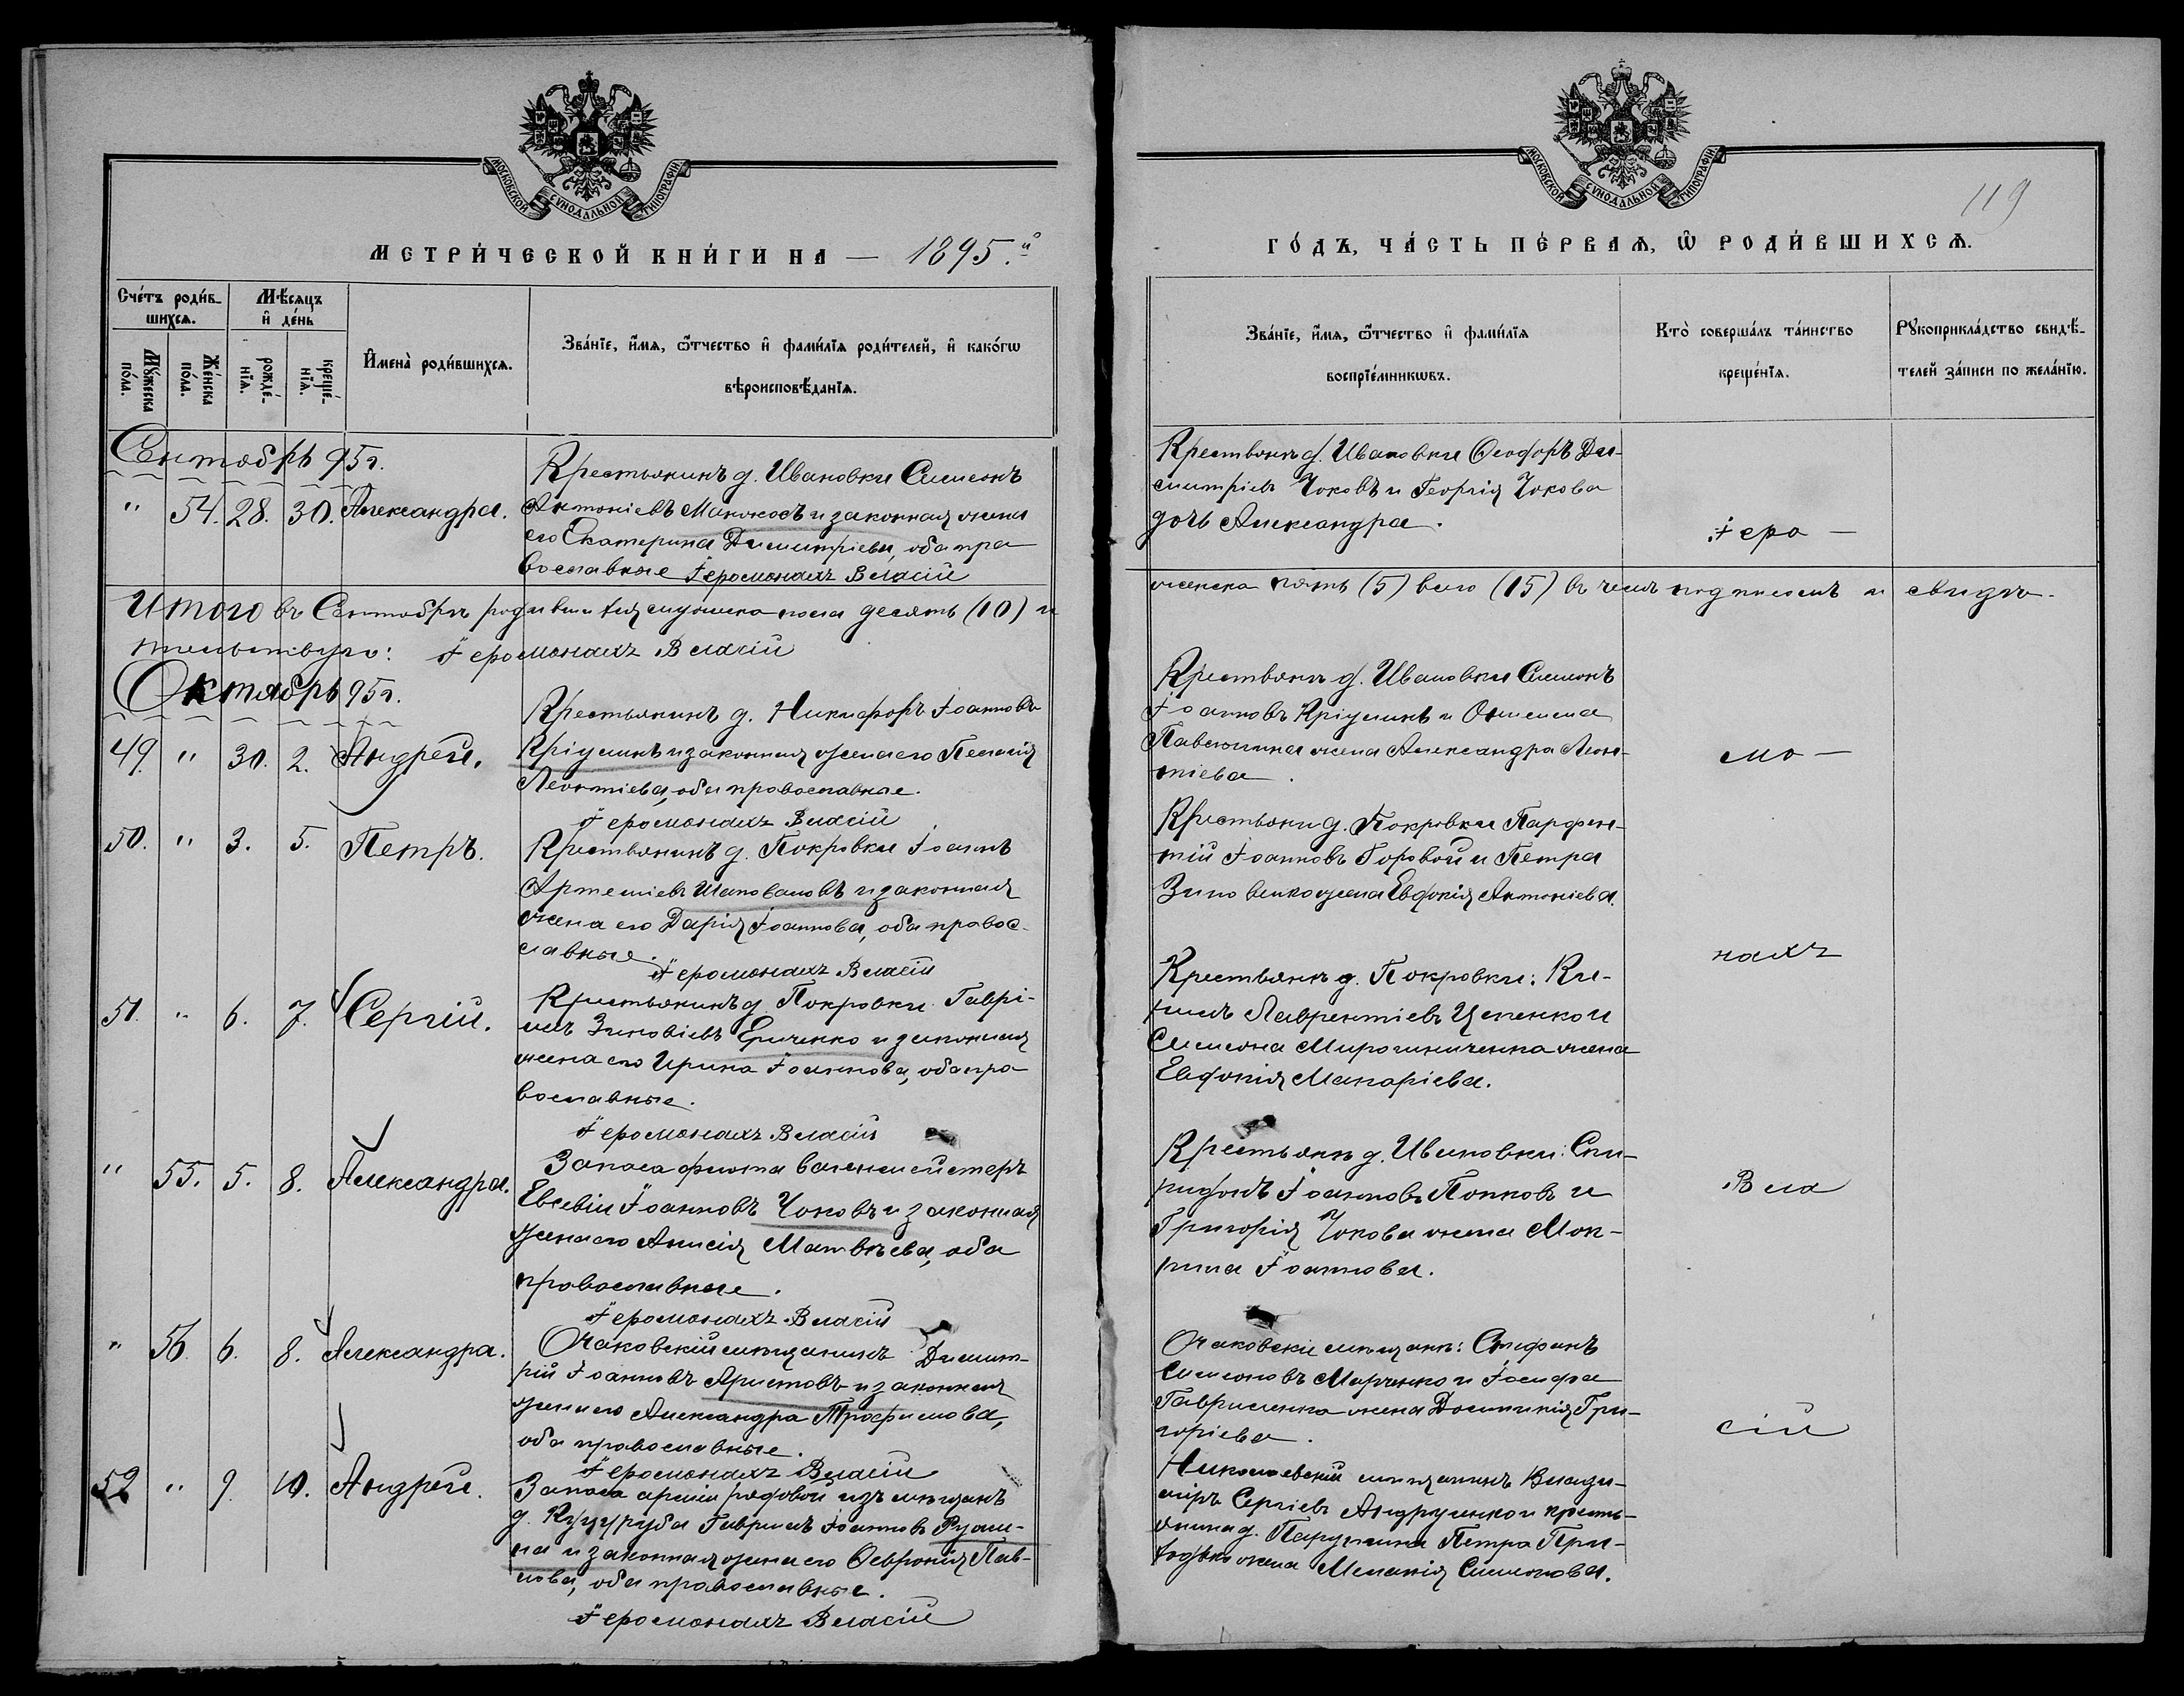 МОСКОВСКОЙ СѴНОДАЛЬНОЙ ТИПОГРАФІИ.
МЕТРИ́ЧЕСКОЙ КНИ́ГИ НА — 1895.й
Сче́тъ роди́в-
шихсѧ.
Мѣ́сѧцъ
и҆ де́нь
Мꙋ́жеска
по́ла.
Же́нска
по́ла.
рожде́-
нїѧ.
креще́-
нїѧ.
И҆мена̀ роди́вшихсѧ.
Зва́нїе, и҆́мѧ, ѻ҆́тчество и҆ фами́лїѧ роди́телей, и҆ како́гѡ
вѣроисповѣ́данїѧ.
Сентябрь 95г.
" 54. 28. 30. Александра.
Крестьянинъ д. Ивановки Симеонъ
Антоніевъ Маконосъ и законная жена
его Екатерина Димитріева, оба пра
вославные Іеромонахъ Власій
Итого въ Сентябрѣ родившихся мужеска пола десять (10) и
тельствую: Іеромонахъ Власій
Октябрь 95г.
49. " 30. 2. Андрей.
Крестьянинъ д. Никифоръ Іоанновъ
Кріуминъ и законная жена его Пелагія
Леонтіева, оба православные.
Іеромонахъ Власій
50. " 3. 5. Петръ.
Крестьянинъ д. Покровки Іоаннъ
Артеміевъ Шаповаловъ и законная
жена его Дарія Іоаннова, оба правос-
славные.
Іеромонахъ Власій
51. " 6. 7. Сергій.
Крестьянинъ д Покровки Гаврі-
илъ Зиновіевъ Ериченко и законная
жена его Ирина Іоаннова, оба пра
вославные.
Іеромонахъ Власій
" 55. 5. 8. Александра.
Запаса флота
Евсевій Іоанновъ Чоковъ и законная
жена его Анисія Матвѣева, оба
православные.
Іеромонахъ Власій
" 56. 6. 8. Александра.
Очаковскій мѣщанинъ Димит-
рій Іоанновъ Аристовъ и законная
жена его Александра Трофимова,
оба православные.
Іеромонахъ Власій
52 " 9. 10. Андрей.
Запаса арміи рядовой изъ мѣщанъ
д. Куцуруба Гавріилъ Іоанновъ
и законная жена его Ѳевронія Пав-
лова, оба православные.
Іеромонахъ Власій
МОСКОВСКОЙ СѴНОДАЛЬНОЙ ТИПОГРАФІИ.
119
ГО́ДЪ, ЧА́СТЬ ПЕ́РВАѦ, Ѡ҆ РОДИ́ВШИХСѦ.
Зва́нїе, и҆́мѧ, ѻ҆́тчество и҆ фами́лїѧ
воспрїе́мникѡвъ.
Кто̀ соверша́лъ та́инство
креще́нїѧ.
Рꙋкоприкла́дство свидѣ́-
телей за́писи по жела́нїю.
Крестьянъ д. Ивановки Ѳеодоръ Ди-
митріевъ Чоковъ и Георгія Чокова
дочь Александра.
Іеро —
женска пять (5) всего (15) въ чемъ подписомъ и свидѣ-
Крестьянъ д. Ивановки Симеонъ
Іоанновъ Кріуминъ и
жена Александра Леон-
тіева.
мо —
Крестьяни д. Покровки Парѳен-
тій Іоанновъ Горовой и Петра
жена Евдокія Антоніева.
нахъ
Крестьянъ д. Покровки: Ки-
риллъ Лаврентіевъ Цепенко и
Симеона Мирошниченка жена
Евдокія Макаріева.
Крестьянъ д. Ивановки: Спи-
ридонъ Іоанновъ Попковъ и
Григорія Чокова жена Мок-
рина Іоаннова.
Вла
Очаковскіе мѣщане: Стефанъ
Симеоновъ Марченко и Іосифа
Гавриленка жена Домникія Гри-
горіева.
сій
Николаевскій мѣщанинъ Влади-
міръ Сергіевъ Андрущенко и кресть-
янина д. Парутина Петра При-
ходько жена Меланія Симеонова.